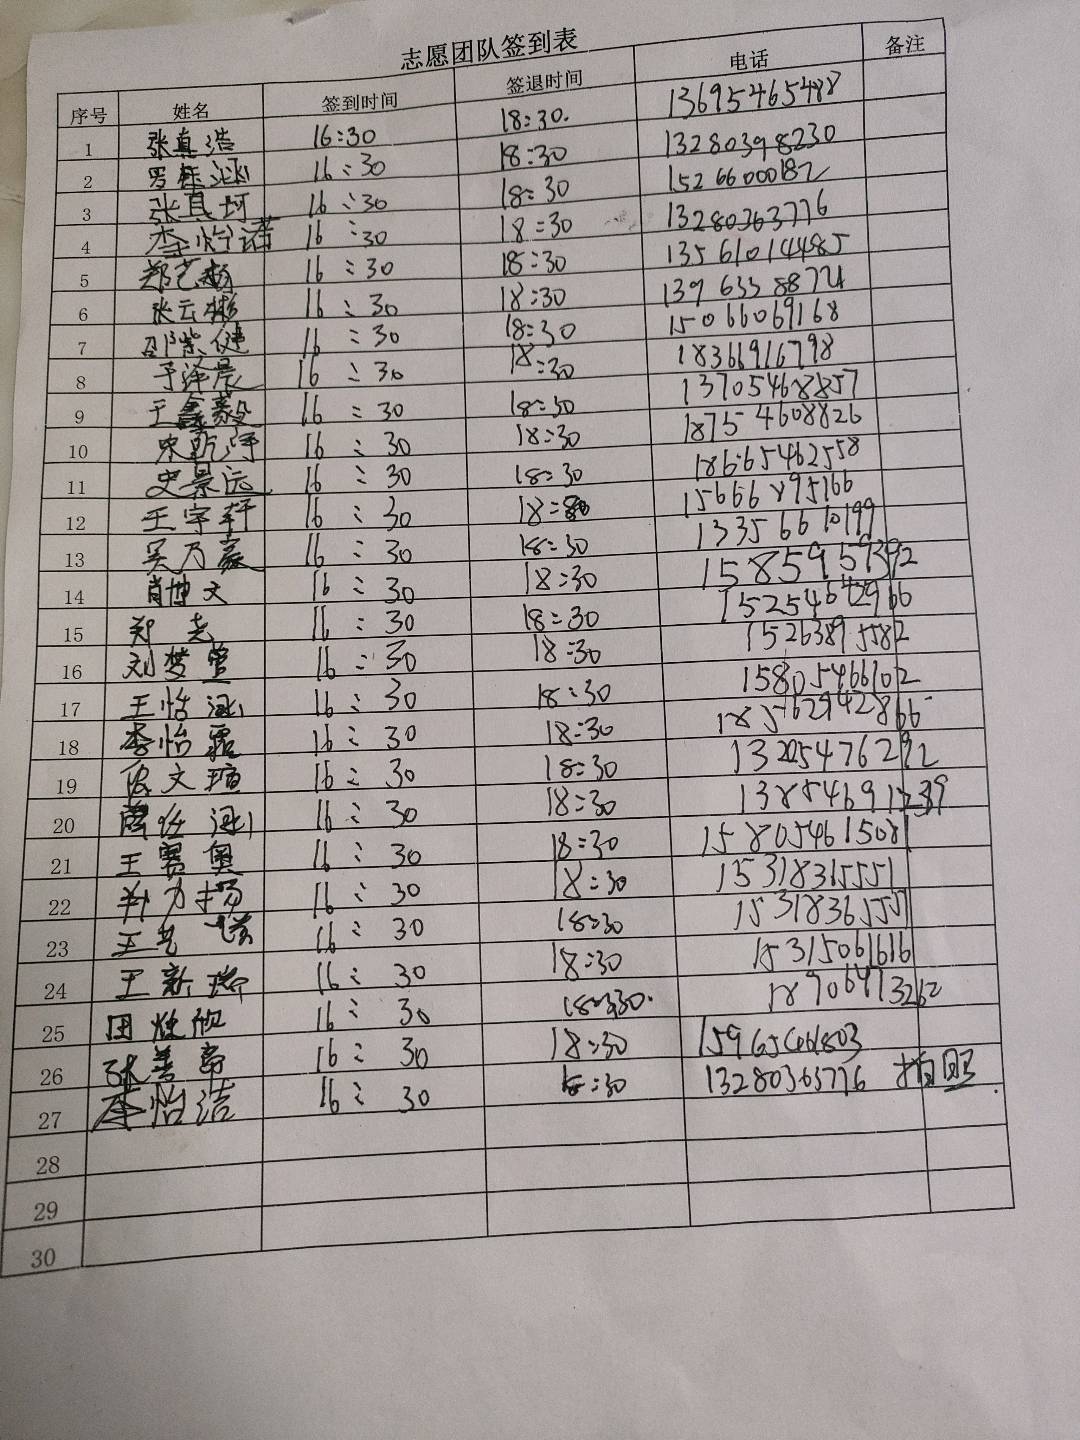 志愿团队签到表
序号 姓名 签到时间 签退时间 电话 备注
1 张真浩 16:30 18:30. 13695465488
2 罗 涵 16:30 18:30 13280398230
3 张真珂 16:30 18:30 15266000182
4 李怡诺 16:30 18:30 13280363776
5 郑艺杨 16:30 18:30 135610144485
6 张云彬 16:30 18:30 13963358874
7 邵紫健 16:30 18:30 15066069168
8 于泽晨 16:30 18:30 18366916798
9 王鑫毅 16:30 18:30 13705468857
10 宋 16:30 18:30 18754608826
11 史景远 16:30 18:30 18665462558
12 王宇轩 16:30 18:30 15666895166
13 吴乃豪 16:30 18:30 13356610199
14 肖博文 16:30 18:30 15859559392
15 郑 16:30 18:30 15254642966
16 刘梦萱 16:30 18:30 15263895582
17 王怡涵 16:30 18:30 15805466102
18 李怡霏 16:30 18:30 18562942866
19 文瑄 16:30 18:30 13205476292
20 薛 涵 16:30 18:30 13854691239
21 王赛奥 16:30 18:30 15805461508
22 力扬 16:30 18:30 15318365551
23 王艺 16:30 18:30 15318365551
24 王新瑞 16:30 18:30 15315061616
25 田 欣 16:30 18:30. 18906473262
26 张善 16:30 18:30 15965461803
27 李怡洁 16:30 18:30 13280363776 拍照
28
29
30